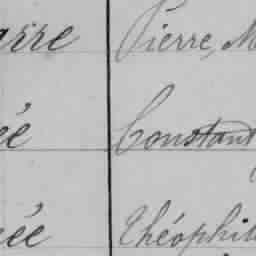 arre Pierre, M
ée Constant
née Théophil